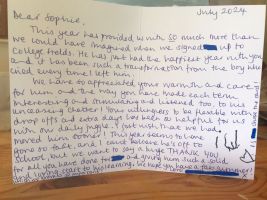 July 2024
Dear Sophie,
This year has provided us with so much more than
we could have imagined when we signed up to
College Fields. He has just had the happiest year with you
and it has been such a transformation from the boy who
cried every time I left him.
We have so appreciated your warmth and care
for him and the way you have made each term
interesting and stimulating and listened too, to his
unceasing chatter! Your willingness to be flexible with
drop offs and extra days has been so helpful for us
with our daily juggle. I just wish that we had
moved him sooner! This year seems to have
gone so fast, and I can't believe he's off to
school, but we want to say a huge THANK YOU
for all you have done for and giving him such a solid
and loving start to his learning. We hope you have a fab summer!